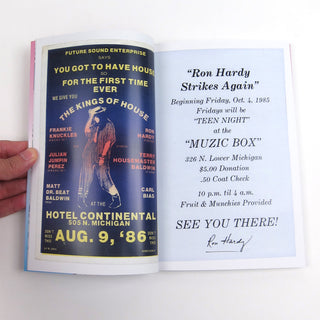 FUTURE SOUND ENTERPRISE
SAYS
YOU GOT TO HAVE HOUSE
SO
FOR THE FIRST TIME
EVER
WE GIVE YOU
THE KINGS OF HOUSE
FRANKIE
KNUCKLES
RON
HARDY
JULIAN
JUMPIN
PEREZ
TERRY
HOUSEMASTER
BALDWIN
MATT
DR. BEAT
BALDWIN
CARL
BIAS
AT THE
HOTEL CONTINENTAL
505 N. MICHIGAN
DON'T
MISS
THIS
AUG. 9, '86
DON'T
MISS
THIS
"Ron Hardy
Strikes Again"
Beginning Friday, Oct. 4, 1985
Fridays will be
"TEEN NIGHT"
at the
"MUZIC BOX"
326 N. Lower Michigan
$5.00 Donation
.50 Coat Check
10 p.m. til 4 a.m.
Fruit & Munchies Provided
SEE YOU THERE!
Ron Hardy